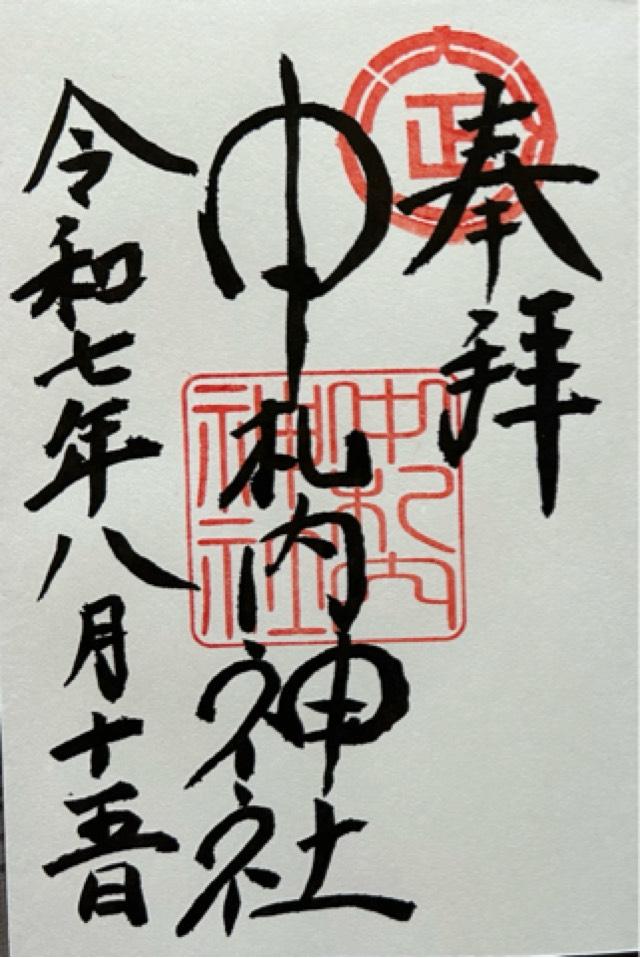 奉拝
正
中札内神社
中札内
神社
令和七年八月十五日